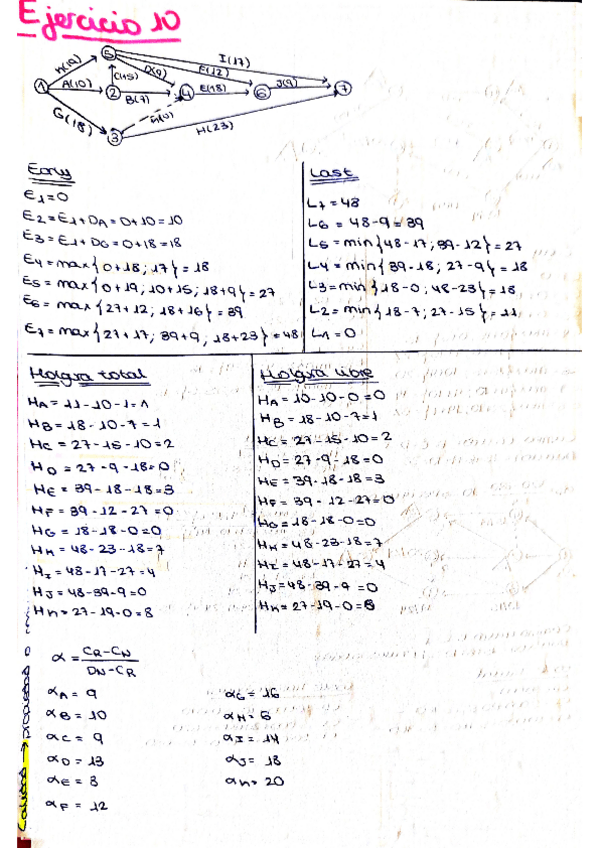 Ejercicio 10
K(19)
A(10)
G(18)
C(15)
D(9)
B(7)
I(17)
F(12)
E(18)
J(9)
H(23)
1
2
3
4
5
6
7
Early
E1=0
E2=E1+DA=0+10=10
E3=E1+DG=0+18=18
E4=max{0+18; 17}=18
E5=max{0+19; 10+15; 18+9}=27
E6=max{27+12; 18+18}=39
E7=max{27+17; 39+9; 18+23}=48
Last
L7=48
L6=48-9=39
L5=min{48-17; 39-12}=27
L4=min{39-18; 27-9}=18
L3=min{18-0; 48-23}=18
L2=min{18-7; 27-15}=11
L1=0
Holgura total
HA=11-10-1=1
HB=18-10-7=1
HC=27-15-10=2
HD=27-9-18=0
HE=39-18-18=3
HF=39-12-27=0
HG=18-18-0=0
HH=48-23-18=7
HI=48-17-27=4
HJ=48-39-9=0
HK=27-19-0=8
Holgura libre
HA=10-10-0=0
HB=18-10-7=1
HC=27-15-10=2
HD=27-9-18=0
HE=39-18-18=3
HF=39-12-27=0
HG=18-18-0=0
HH=48-23-18=7
HI=48-17-27=4
HJ=48-39-9=0
HK=27-19-0=8
α = CR-CN / DN-CR
αA=9
αB=10
αC=9
αD=13
αE=8
αF=12
αG=16
αH=8
αI=14
αJ=18
αK=20